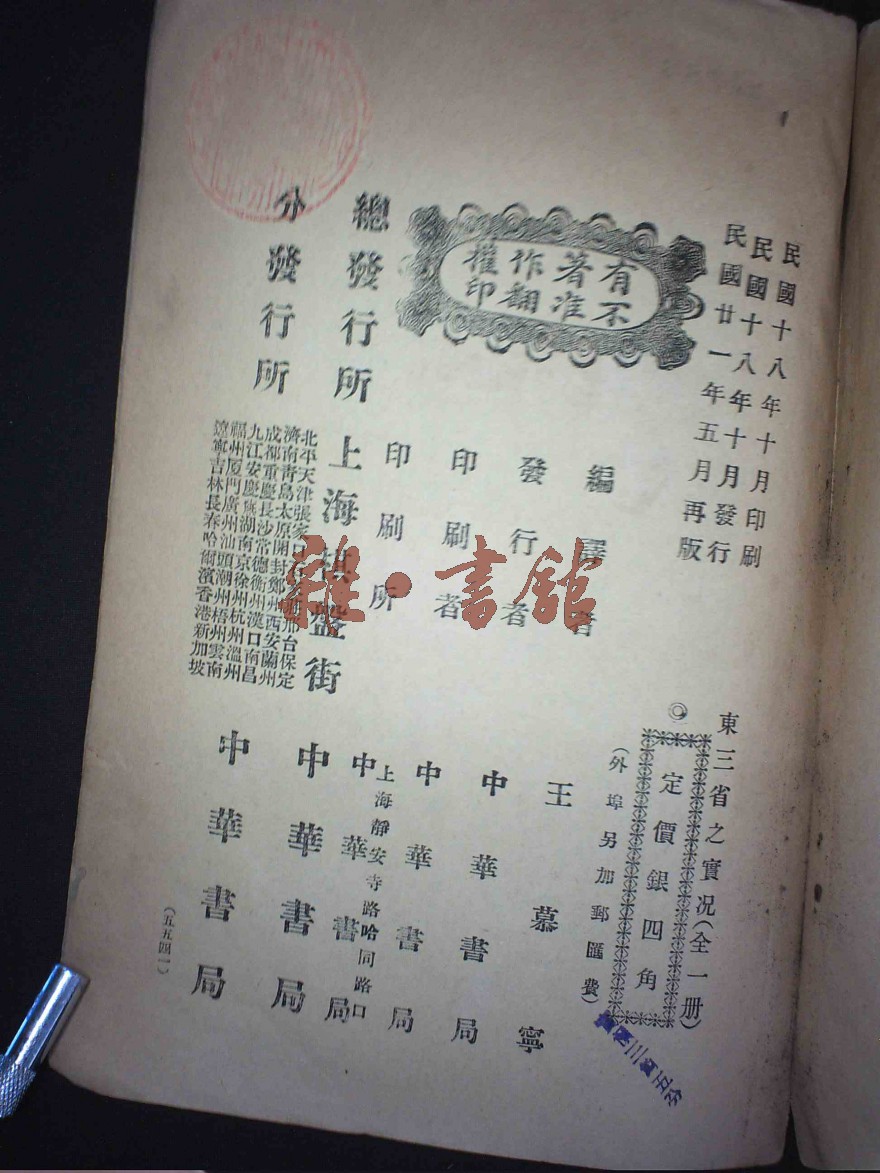 民國十八年十月印刷
民國十八年十月發行
民國廿一年五月再版
東三省之實況(全一册)
◎定價銀四角
(外埠另加郵匯費)
有不
著准
作翻
權印
編譯者 王慕寧
發行者 中華書局
印刷者 中華書局
印刷所 上海靜安寺路哈同路口 中華書局
總發行所 上海棋盤街 中華書局
分發行所
北平天津張家口
邢台保定
濟南青島太原開封鄭州西安蘭州
成都重慶長沙常德衡州漢口南昌
九江安慶蕪湖南京徐州杭州溫州
福州厦門廣州汕頭潮州梧州雲南
遼寧吉林長春哈爾濱香港新加坡
中華書局
(五五四一)
雜·書舘